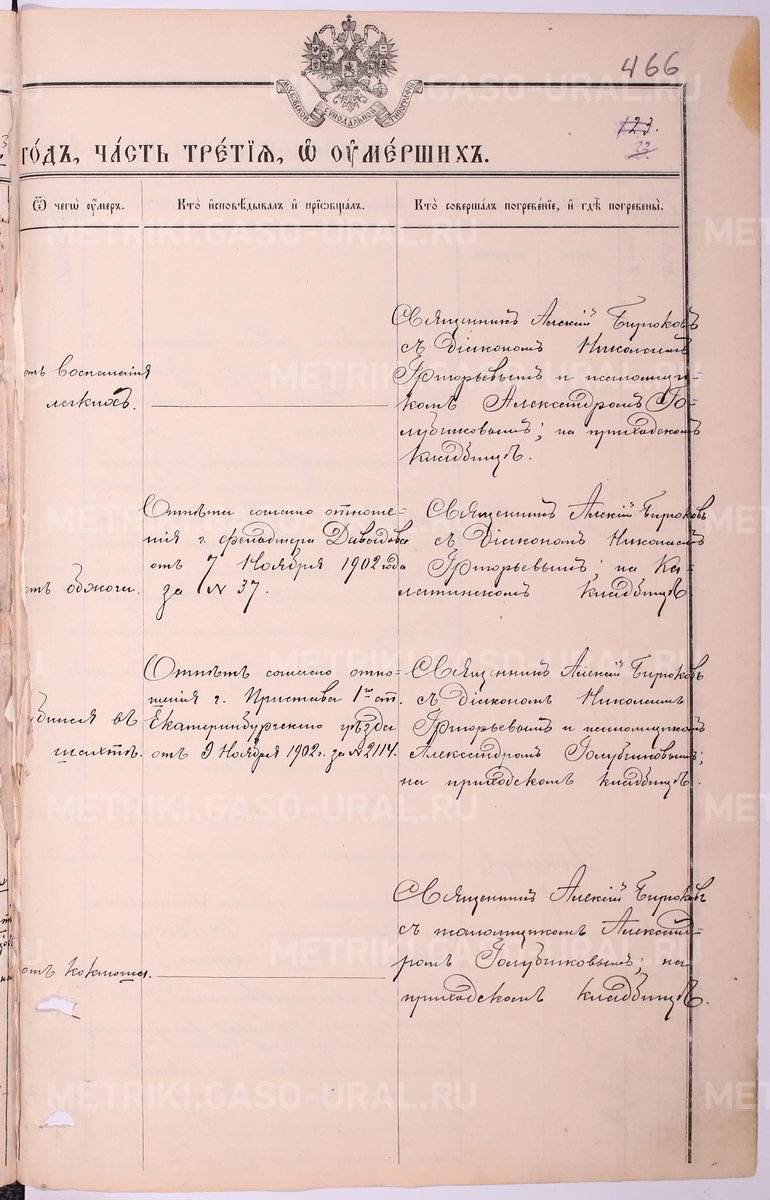 466
МОСКОВСКОЙ СѴНОДАЛЬНОЙ ТИПОГРАФІИ
123.
33.
го́дъ, ча́сть тре́тїѧ, ѡ҆ ᲂу҆ме́ршихъ.
Ѿ чегѡ̀ ᲂу҆́меръ.
Кто̀ и҆сповѣ́дывалъ и҆ прїѡбща́лъ.
Кто̀ соверша́лъ погребе́нїе, и҆ гдѣ̀ погребены̀.
отъ воспаленія
легкихъ.
Священникъ Алексій Бирюковъ
съ Діакономъ Николаемъ
Григорьевымъ и псаломщи-
комъ Александромъ Го-
лубчиковымъ; на приходскомъ
кладбищѣ.
отъ обжога.
Отпѣты согласно отноше-
нія г. Давыдова
отъ 7 Ноября 1902 года
за № 37.
Священникъ Алексій Бирюковъ
съ Діакономъ Николаемъ
Григорьевымъ; на Ка-
латинскомъ кладбищѣ
въ
шахтѣ.
Отпѣтъ согласно отно-
шенія г. Пристава 1го ст.
Екатеринбургскаго уѣзда
отъ 9 Ноября 1902 г. за № 2114.
Священникъ Алексій Бирюковъ
съ Діакономъ Николаемъ
Григорьевымъ и псаломщикомъ
Александромъ Голубчиковымъ;
на приходскомъ кладбищѣ.
отъ коклюша.
Священникъ Алексій Бирюковъ
съ псаломщикомъ Александ-
ромъ Голубчиковымъ; на
приходскомъ кладбищѣ.
METRIKI.GASO-URAL.RU